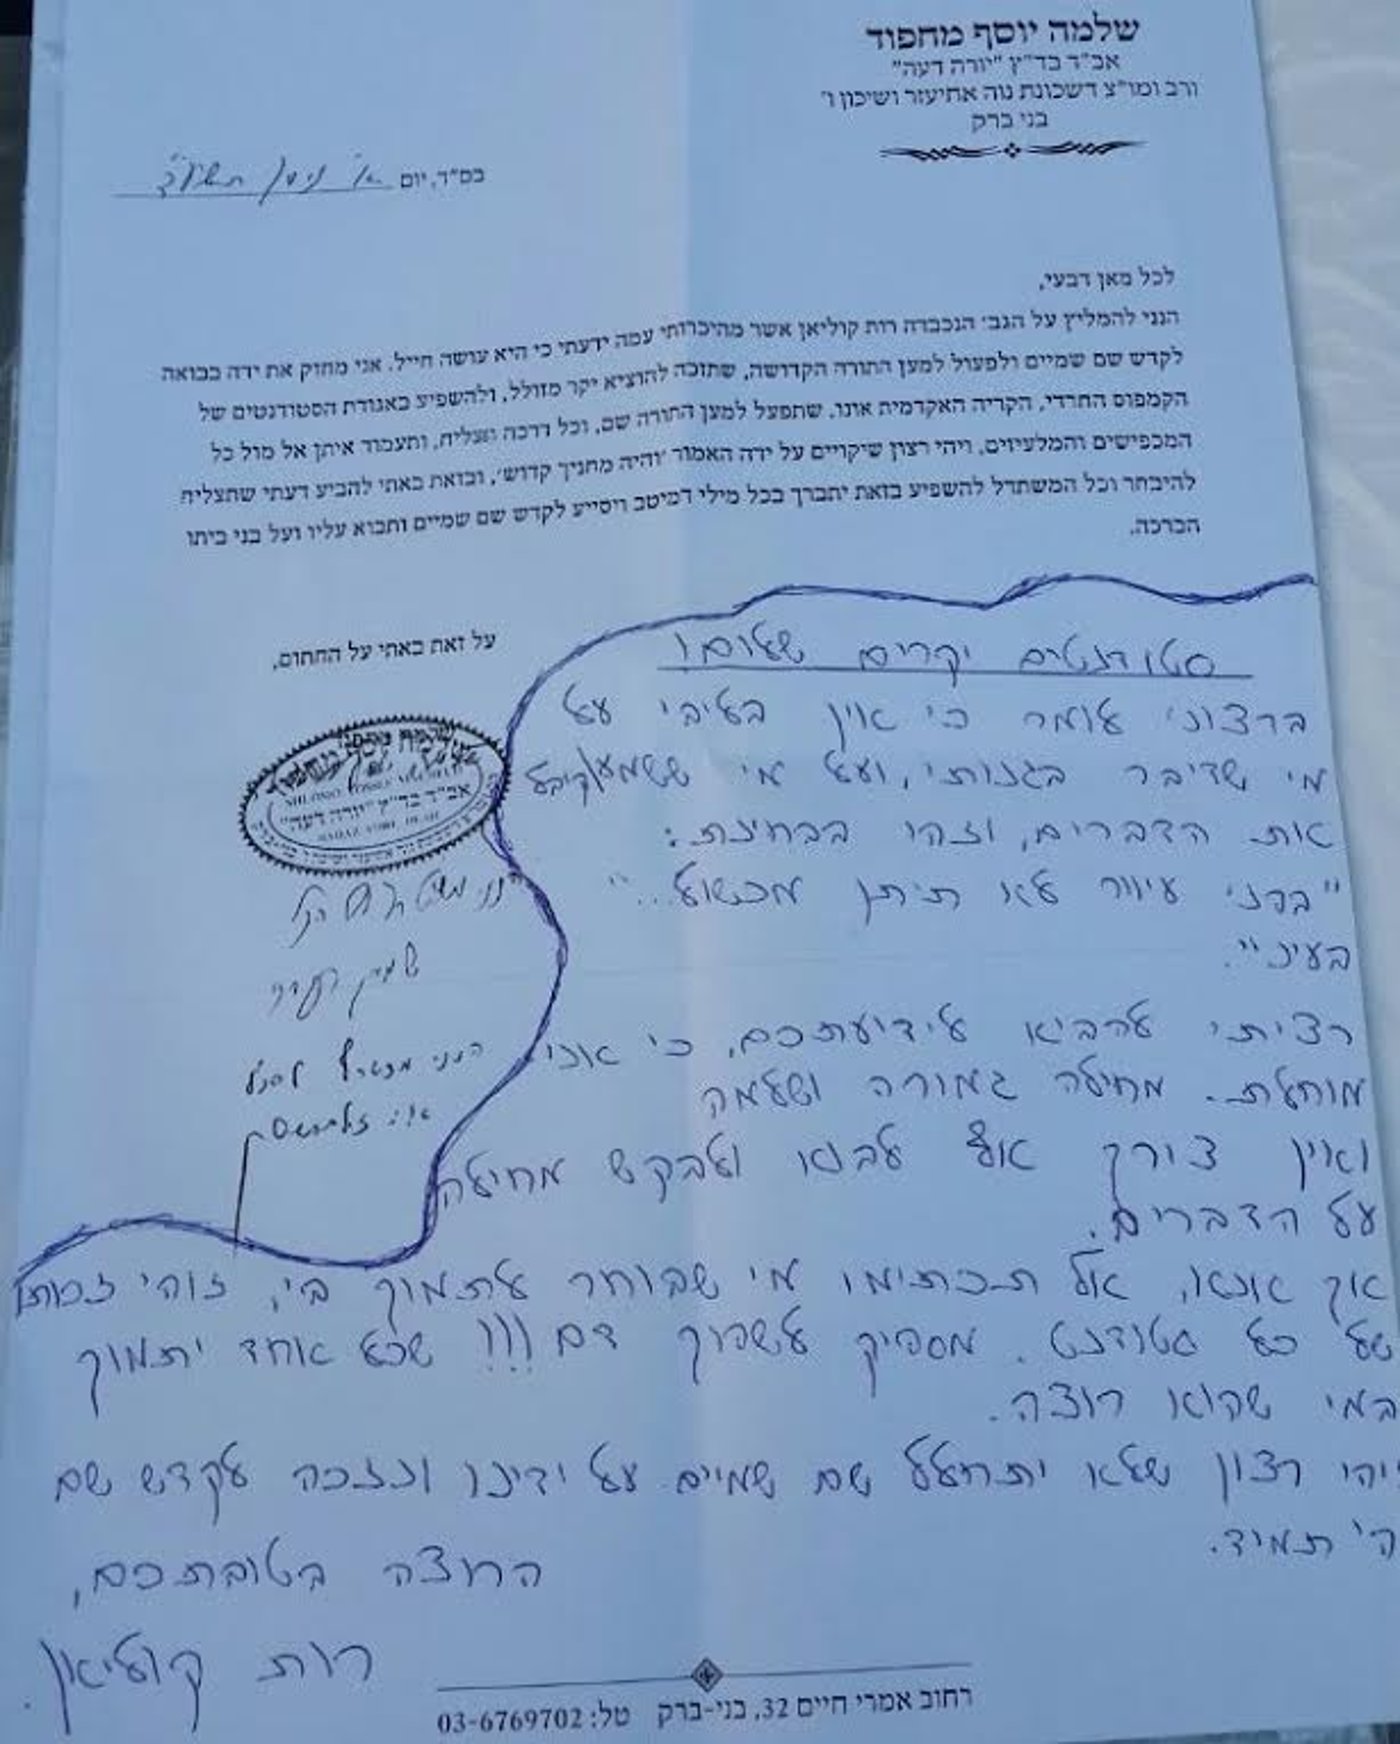 שלמה יוסף מחפוד
אב"ד בד"ץ "יורה דעה"
ורב ומו"צ דשכונת נוה אחיעזר ושיכון ו'
בני ברק
בס"ד, יום א' ניסן
לכל מאן דבעי,
הנני להמליץ על הגב' הנכבדה רות קוליאן אשר מהיכרותי עמה ידעתי כי היא עושה חייל. אני מחזק את ידה בבואה
לקדש שם שמיים ולפעול למען התורה הקדושה, שתזכה להוציא יקר מזולל, ולהשפיע באגודת הסטודנטים של
הקמפוס החרדי, הקריה האקדמית אונו. שתפעל למען התורה שם, וכל דרכה תצליח, ותעמוד איתן אל מול כל
המכפישים והמלעיזים, ויהי רצון שיקויים על ידה האמור 'והיה מחניך קדוש', ובזאת באתי להביע דעתי שתצליח
להיבחר וכל המשתדל להשפיע בזאת יתברך בכל מילי דמיטב ויסייע לקדש שם שמיים ותבוא עליו ועל בני ביתו
הברכה.
על זאת באתי על החתום,
שלמה יוסף מחפוד
אב"ד בד"ץ "יורה דעה"
סטודנטים יקרים שלום!
ברצוני לומר כי אין בליבי על
מי שדיבר בגנותי, ועל מי ששמע/קיבל
את הדברים, וזהו בבחינת:
"בפני עיוור לא תיתן מכשול..."
בעיני.
רציתי להביא לידיעתכם, כי אני
מוחלת. מחילה גמורה ושלמה
ואין צורך אף לבוא ולבקש מחילה
על הדברים.
אך אנא, אל תכתימו מי שבוחר לתמוך בי, זוהי זכותו
של כל סטודנט. מספיק לשפוך דם!!! שכל אחד יתמוך
במי שהוא רוצה.
יהי רצון שלא יתחלל שם שמיים על ידינו ונזכה לקדש שם
ה' תמיד.
הרוצה בטובתכם,
רות קוליאן.
רחוב אמרי חיים 32, בני-ברק טל: 03-6769702